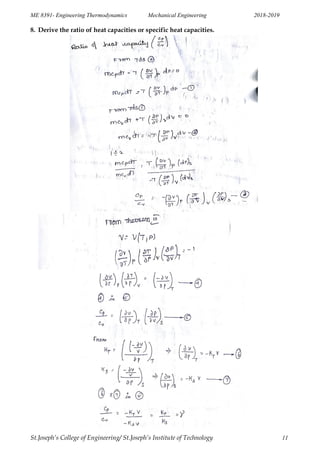 ME 8391- Engineering Thermodynamics Mechanical Engineering 2018-2019
8. Derive the ratio of heat capacities or specific heat capacities.
Ratio of heat capacity (Cp/Cv)
From Tds ②
mcpdT = T (∂v/∂T)p dp = 0
mcpdT = T (∂v/∂T)p dp — ①
From Tds ①
mcv dT + T (∂P/∂T)v dv = 0
mcv dT = -T (∂P/∂T)v dv — ②
1 ÷ 2
mcpdT / mcv dT = T (∂v/∂T)p (dp)s / -T (∂P/∂T)v (dv)s
Cp/Cv = -(∂v/∂T)p (∂T/∂P)v (∂P/∂v)s — ③
From theorem III
V = V(T,P)
(∂v/∂T)p (∂T/∂P)v (∂P/∂v)T = -1
(∂v/∂T)p (∂T/∂P)v = (-∂v/∂P)T — ④
④ in ③
Cp/Cv = (∂v/∂P)T (∂P/∂v)s — ⑤
From
KT = ((-∂v/v)/∂P)T ⇒ (∂v/∂P)T = -KT V — ⑥
Ks = ((-∂v/v)/∂P)s ⇒ (∂v/∂P)s = -Ks V — ⑦
⑥ & ⑦ in ⑤
Cp/Cv = -KT V / -Ks V = KT/Ks = γ
St.Joseph's College of Engineering/ St.Joseph's Institute of Technology 11